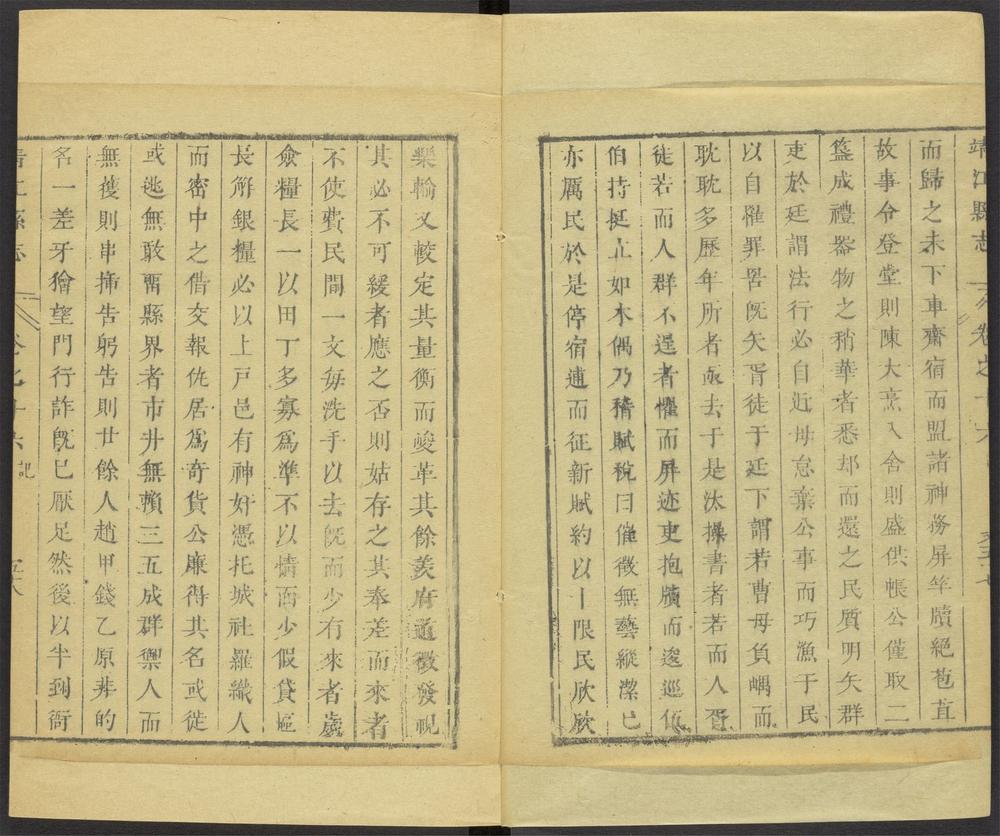 靖江縣志 卷之十六
而歸之未下車齋宿而盟諸神務屏竿牘絕苞苴
故事令登堂則陳大烹入舍則盛供帳公僅取二
簋成禮器物之稍華者悉却而還之民質明矢群
吏於廷謂法行必自近毋怠棄公事而巧漁于民
以自罹罪罟旣矢胥徒于廷下謂若曹毋負嵎而
耽耽多歷年所者亟去于是汰操書者若而人胥
徒若而人群不逞者懼而屏迹吏抱牘而逡巡伍
伯持挺止如木偶乃稽賦稅曰催徵無藝縱潔已
亦厲民於是停宿逋而征新賦約以一限民欣欣
樂輸又較定其量衡而竣革其餘羨府道徵發視
其必不可緩者應之否則姑存之其奉差而來者
不使費民間一文每洗手以去旣而少有來者歲
僉糧長一以田丁多寡爲準不以情面少假貸區
長解銀糧必以上戸邑有神奸憑托城社羅織人
而密中之借交報仇居爲奇貨公廉得其名或徙
或逃無敢畱縣界者市井無賴三五成群禦人而
無獲則串揷告躬告則廿餘人趙甲錢乙原非的
名一差牙獪望門行詐旣已厭足然後以半到衙
靖江縣志 卷之十六 記